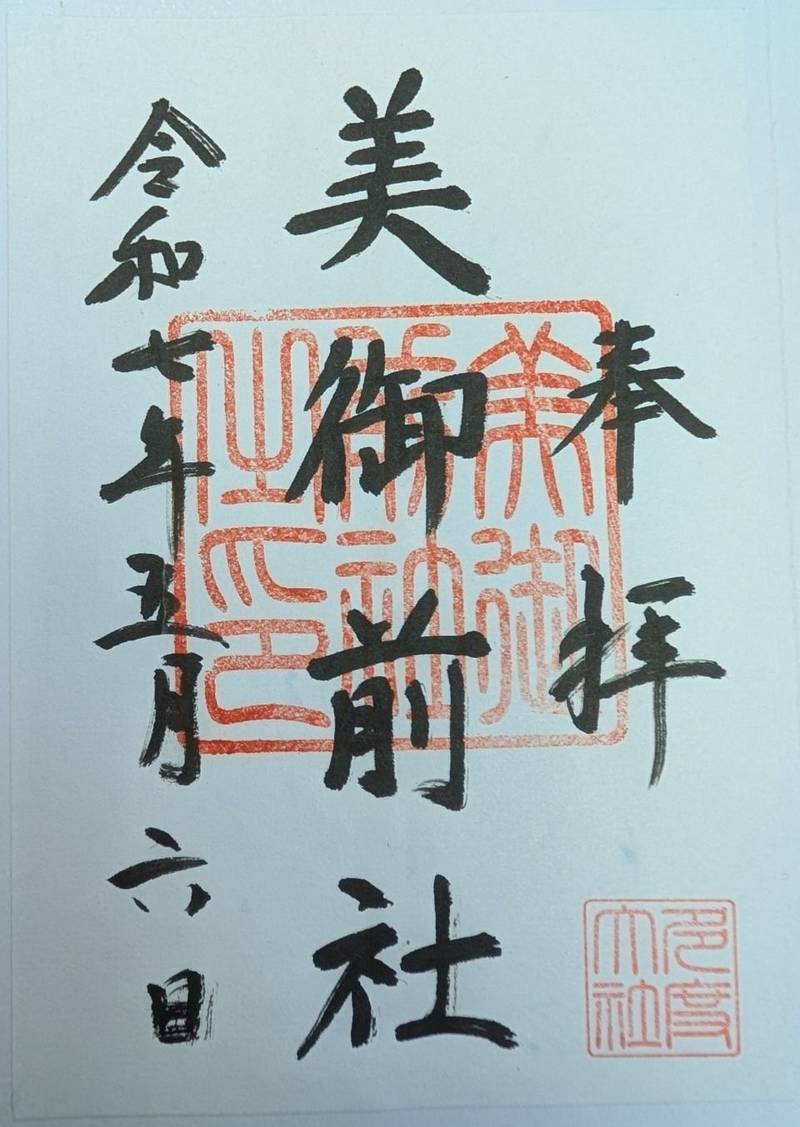 奉拝
美御前社
令和七年五月六日
美御
前社
之印
多度
大社